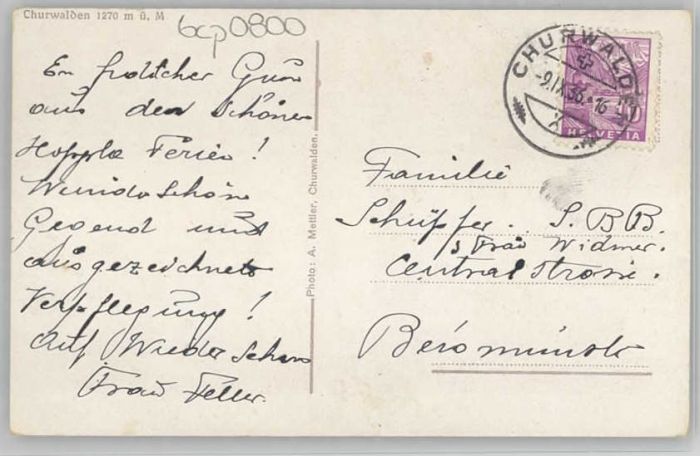 Churwalden 1270 m ü. M
bcp0800
Ein frölicher Gruss
aus den Schönen
Hoppla Ferien!
Wunder Schöne
Gegend und
ausgezeichnete
Verpflegung!
Auf Wieder Sehen
Frau Feller.
Photo: A. Mettler, Churwalden.
CHURWALDEN
-9.IX.36.-16
10
HELVETIA
Familie
Schüpfer. S.B.B.
z Frau Widmer.
Centralstrasse.
Beromünster